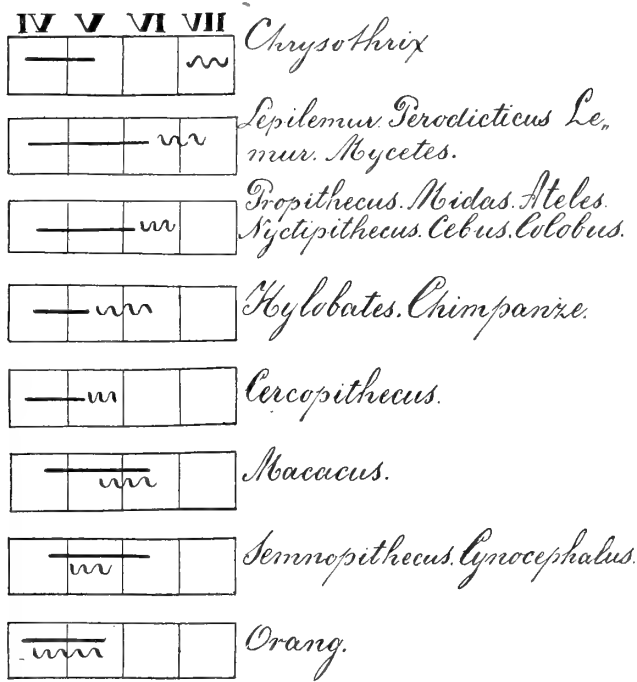 IV V VI VII
Chrysothrix
Lepilemur. Perodicticus Le„
mur. Mycetes.
Propithecus. Midas. Ateles.
Nyctipithecus. Cebus. Colobus.
Hylobates. Chimpanze.
Cercopithecus.
Macacus.
Semnopithecus. Cynocephalus.
Orang.